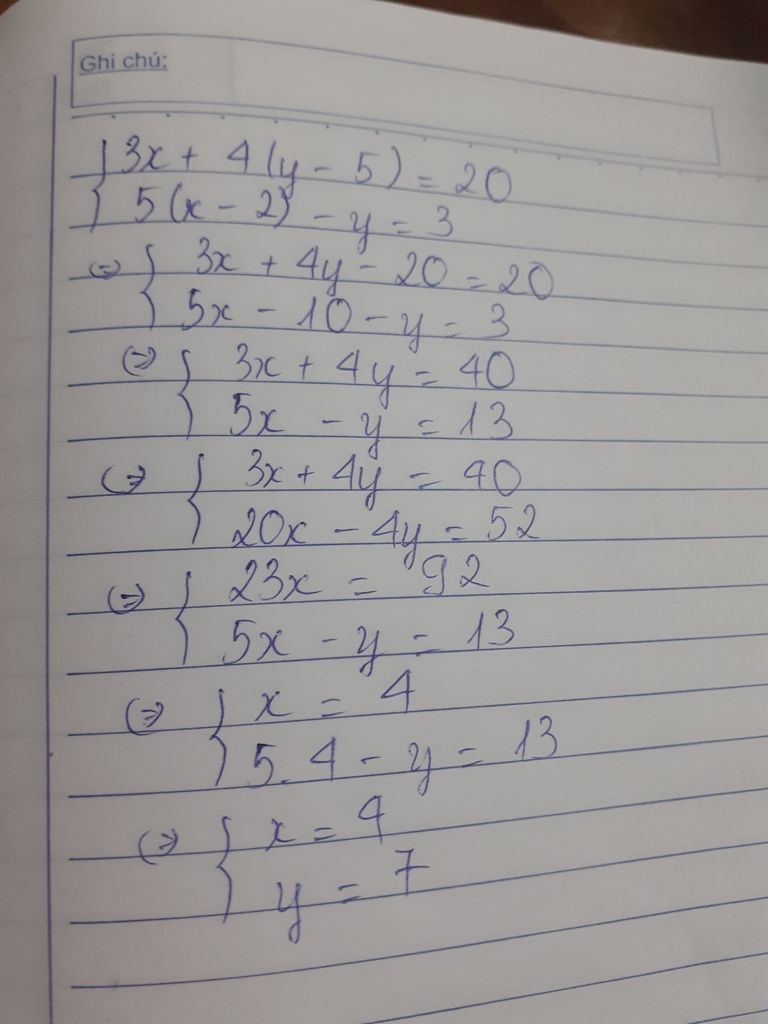 Ghi chú:
{ 3x + 4(y - 5) = 20
5(x - 2) - y = 3
(=) { 3x + 4y - 20 = 20
5x - 10 - y = 3
(=) { 3x + 4y = 40
5x - y = 13
(=) { 3x + 4y = 40
20x - 4y = 52
(=) { 23x = 92
5x - y = 13
(=) { x = 4
5.4 - y = 13
(=) { x = 4
y = 7